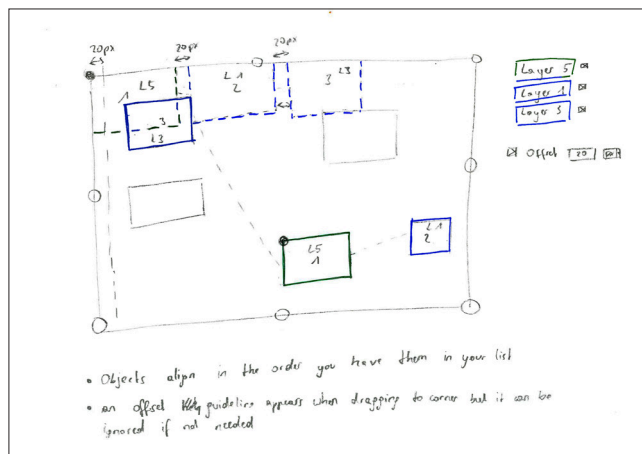 20px 20px 20px
L5 L1 3 L3
1 2
3
L3
L5
1
L1
2
Layer 5
Layer 1
Layer 3
Offset 20 px
• Objects align in the order you have them in your list
• an offset guideline appears when dragging to corner but it can be
ignored if not needed